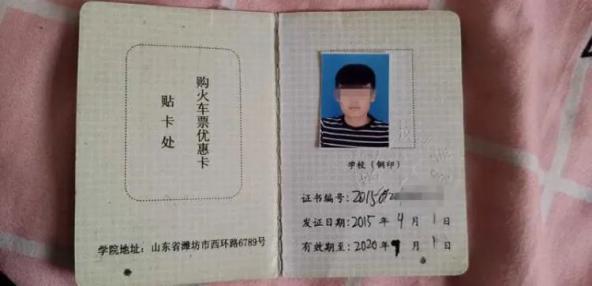 购火车票优惠卡
贴卡处
学院地址：山东省潍坊市西环路6789号
学校（钢印）
证书编号：20150
发证日期：2015 年 4 月 1 日
有效期至：2020 年 9 月 1 日